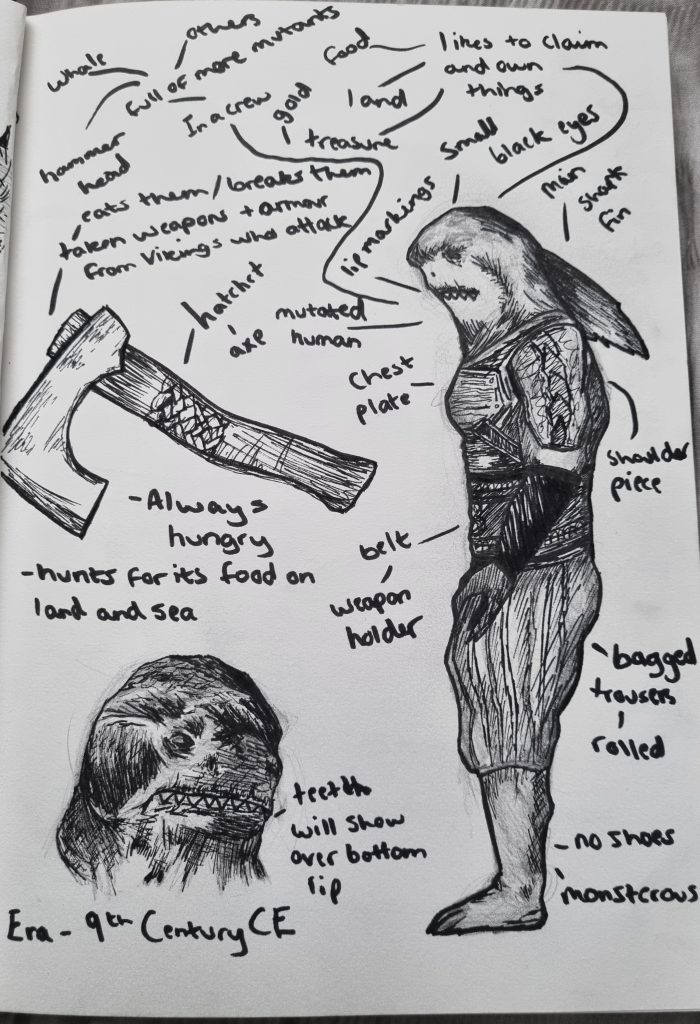 others
whale
full of more mutants
In a crew
hammer
head
food
likes to claim
and own
things
land
gold
treasure
small
black eyes
min
shark
fin
lip markings
eats them / breaks them
taken weapons + armour
from Vikings who attack
hatchet
axe
mutated
human
chest
plate
shoulder
piece
- Always
hungry
- hunts for its food on
land and sea
belt
weapon
holder
bagged
trousers
rolled
teeth
will show
over bottom
lip
- no shoes
monsterous
Era - 9th Century CE